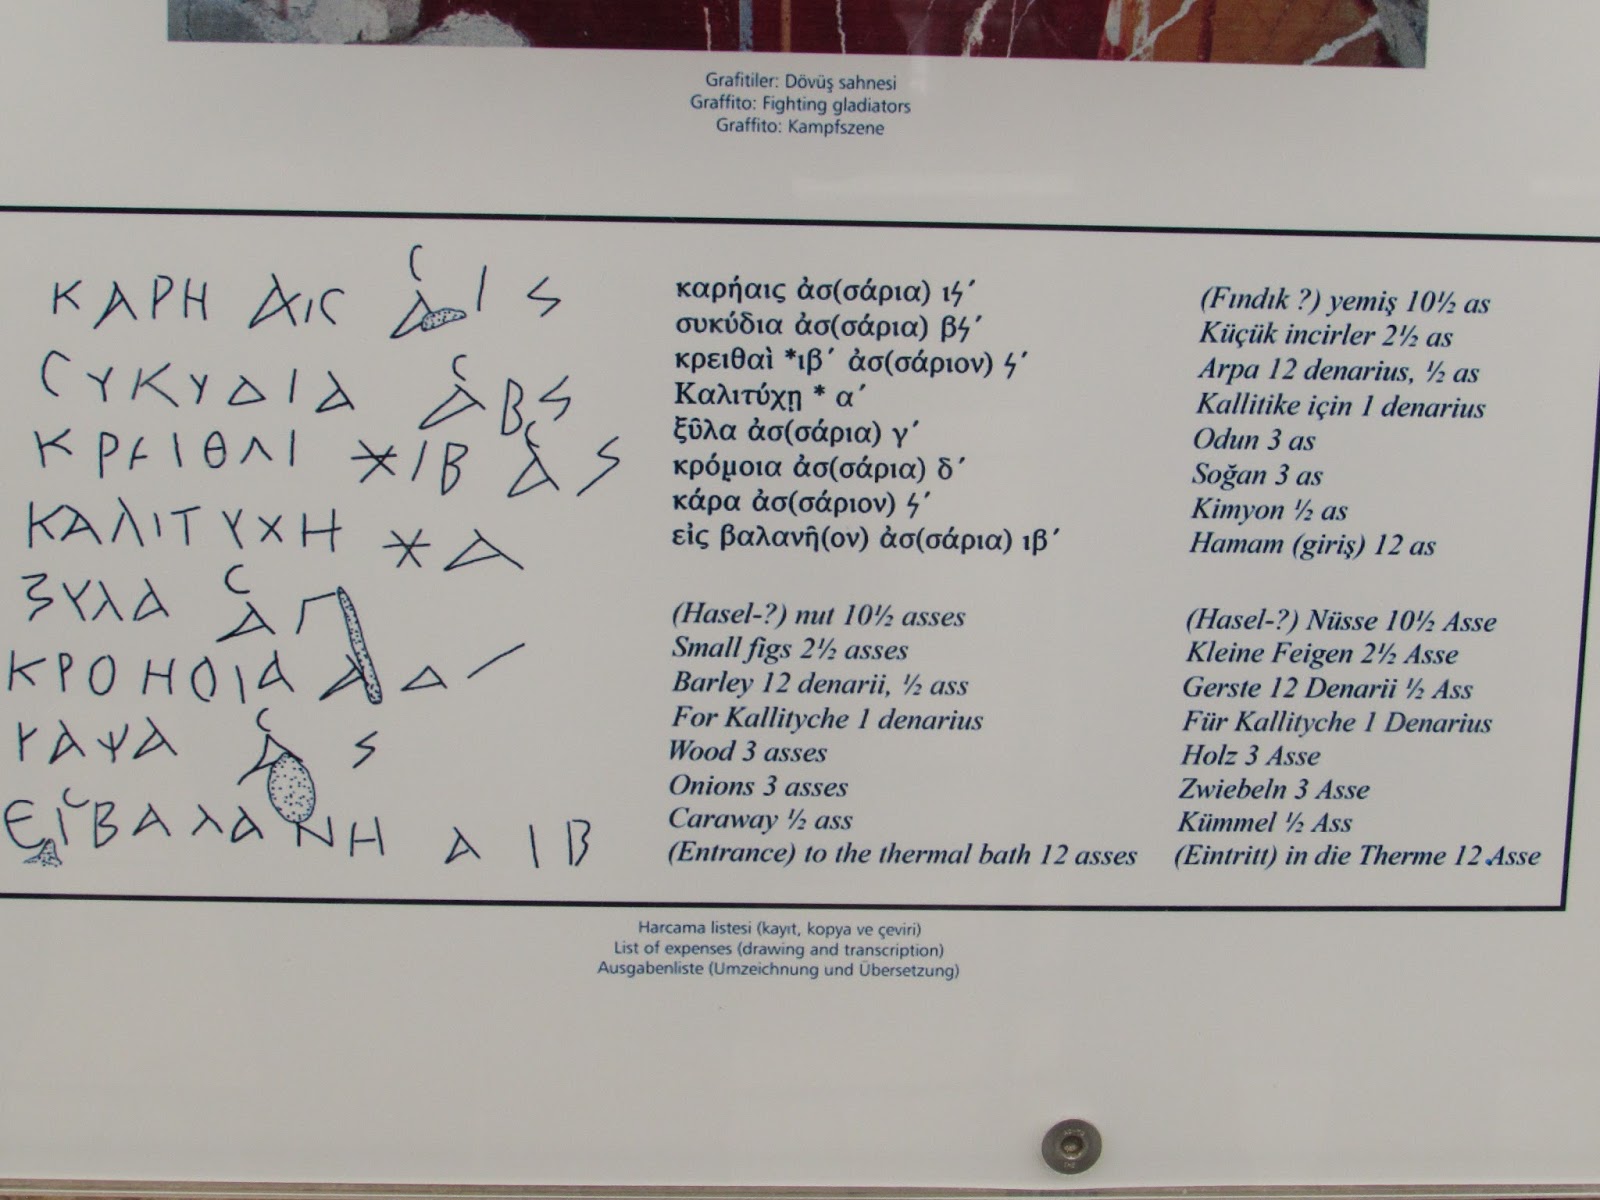 Grafitiler: Dövüş sahnesi
Graffito: Fighting gladiators
Graffito: Kampfszene
ΚΑΡΗ ΑΙϹ Α͑ Ι Ϟ
ϹΥΚΥΔΙΑ Α͑ Β Ϟ
ΚΡΕΙΘΑΙ ✳ΙΒ Α͑ Ϟ
ΚΑΛΙΤΥΧΗ ✳ Α
ΞΥΛΑ Α͑ Γ
ΚΡΟΗΟΙΑ Α Δ ⁄
ΕΙϹΒΑΛΑΝΗ Α ΙΒ
καρήαις ἀσ(σάρια) ιϟ´
συκύδια ἀσ(σάρια) βϟ´
κρειθαὶ *ιβ´ ἀσ(σάριον) ϟ´
Καλιτύχῃ * α´
ξῦλα ἀσ(σάρια) γ´
κρόμ̣οια ἀσ(σάρια) δ´
κάρα ἀσ(σάριον) ϟ´
εἰς βαλανῆ(ον) ἀσ(σάρια) ιβ´
(Fındık ?) yemiş 10½ as
Küçük incirler 2½ as
Arpa 12 denarius, ½ as
Kallitike için 1 denarius
Odun 3 as
Soğan 3 as
Kimyon ½ as
Hamam (giriş) 12 as
(Hasel-?) nut 10½ asses
Small figs 2½ asses
Barley 12 denarii, ½ ass
For Kallityche 1 denarius
Wood 3 asses
Onions 3 asses
Caraway ½ ass
(Entrance) to the thermal bath 12 asses
(Hasel-?) Nüsse 10½ Asse
Kleine Feigen 2½ Asse
Gerste 12 Denarii ½ Ass
Für Kallityche 1 Denarius
Holz 3 Asse
Zwiebeln 3 Asse
Kümmel ½ Ass
(Eintritt) in die Therme 12 Asse
Harcama listesi (kayıt, kopya ve çeviri)
List of expenses (drawing and transcription)
Ausgabenliste (Umzeichnung und Übersetzung)